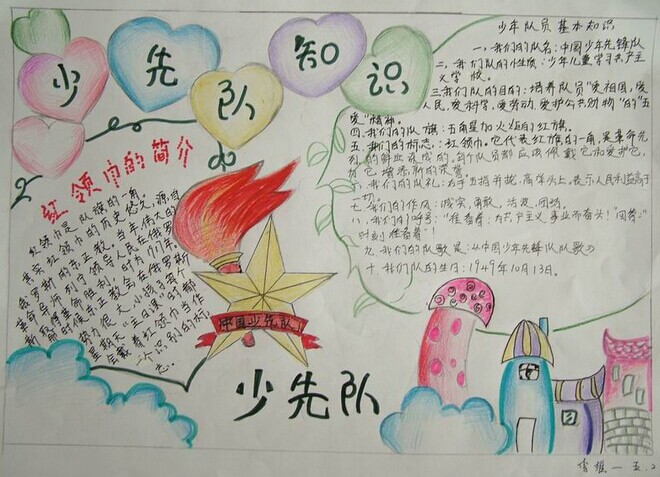 少先队知识
少年队员基本知识
一、我们的队名:中国少年先锋队
二、我们队的性质:少年儿童学习共产主
义学校。
三我们队的目的:培养队员"爱祖国,爱
人民,爱科学,爱劳动,爱护公共财物"的"五
爱"精神。
四、我们的队旗:五角星加火炬的红旗。
五、我们的标志:红领巾。它代表红旗的一角,是革命先
烈的鲜血染成的,每个队员都应该佩戴它和爱护它,
为它增添新的荣誉。
六、我们的队礼:右手五指并拢,高举头上,表示人民利益高于
一切。
七、我们的作风:诚实,勇敢,活泼,团结。
八、我们的呼号:"准备着:为共产主义事业而奋斗!"回答:"
时刻准备着!"
九、我们的队歌是:《中国少年先锋队队歌》
十、我们队的生日:1949年10月13日。
红领巾的简介
红领巾是队旗的一角。
其实红领巾的历史悠久,源自
俄罗斯的东正教,当年伟大的
星期天"主日课"的都
会戴着红领巾当作
一个识别的标
志。
中国少先队
少先队